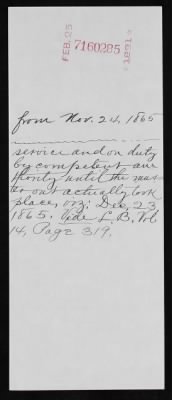 FEB. 23
7160285
from Nov. 24, 1865
service and on duty
by competent au
thority until the mus
ter out actually took
place, viz; Dec. 23,
1865. Vide L. B. Vol
14, Page 319.